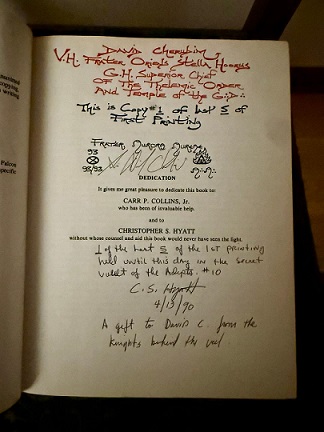 mitted
copying,
writing
Falcon
specific
David Cherubim
V.H. Frater Orion's Stella Horus
G.H. Superior Chief
Of The Thelemic Order
And Temple of the G∴D∴
This is Copy #1 of last 5 of
First Printing
Frater Aurora Aureae
93
93/93
DEDICATION
It gives me great pleasure to dedicate this book to:
CARR P. COLLINS, Jr.
who has been of invaluable help.
and to
CHRISTOPHER S. HYATT
without whose counsel and aid this book would never have seen the light.
1 of the last 5 of the 1ST PRINTING
held until this day in the secret
vault of the Adepts. #10
C.S. Hyatt
4/13/90
A gift to David C. from the
Knights behind the veil